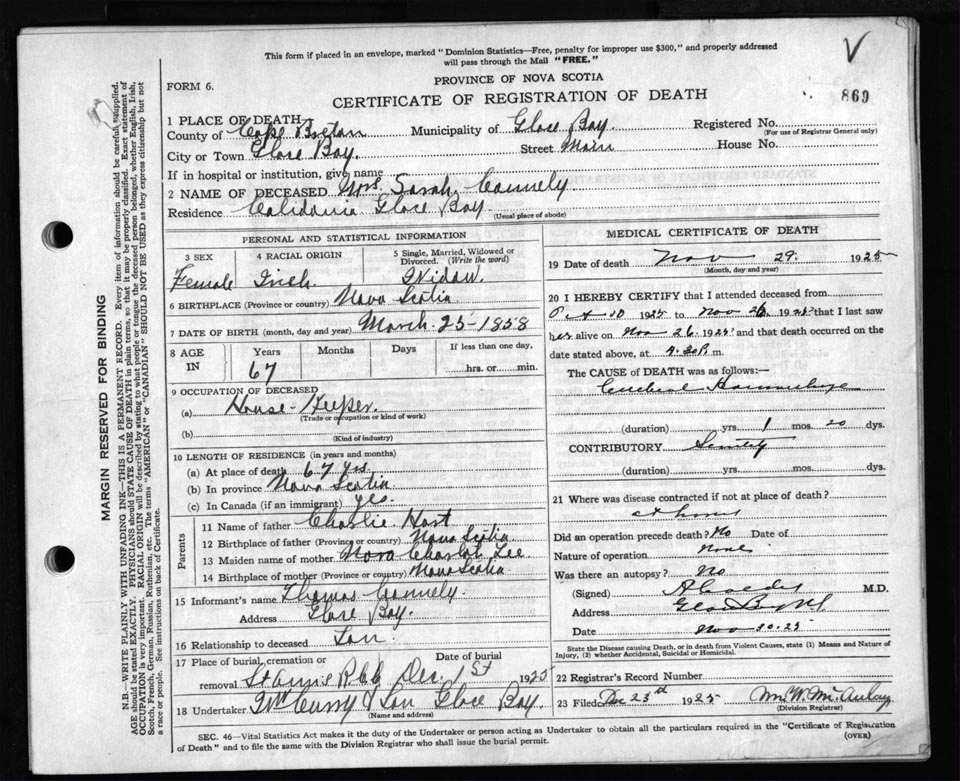 This form if placed in an envelope, marked "Dominion Statistics—Free, penalty for improper use $300," and properly addressed
will pass through the Mail "FREE."
V
PROVINCE OF NOVA SCOTIA
FORM 6.
CERTIFICATE OF REGISTRATION OF DEATH
869
1 PLACE OF DEATH
County of Cape Breton Municipality of Glace Bay. Registered No.
(For use of Registrar General only)
City or Town Glace Bay. Street Main House No.
If in hospital or institution, give name
2 NAME OF DECEASED Mrs. Sarah Connely
Residence Calidonia Glace Bay
(Usual place of abode)
PERSONAL AND STATISTICAL INFORMATION
3 SEX 4 RACIAL ORIGIN 5 Single, Married, Widowed or Divorced. (Write the word)
Female Irish Widow.
6 BIRTHPLACE (Province or country) Nova Scotia
7 DATE OF BIRTH (month, day and year) March. 25-1858
8 AGE IN Years Months Days If less than one day,
67 hrs. or min.
9 OCCUPATION OF DECEASED
(a) House-Keeper.
(Trade or occupation or kind of work)
(b)
(Kind of industry)
10 LENGTH OF RESIDENCE (in years and months)
(a) At place of death 67 yrs.
(b) In province Nova Scotia
(c) In Canada (if an immigrant) yes.
Parents
11 Name of father Charlie Hart
12 Birthplace of father (Province or country) Nova Scotia
13 Maiden name of mother Lee
14 Birthplace of mother (Province or country) Nova Scotia
15 Informant's name Thomas Connely.
Address Glace Bay.
16 Relationship to deceased Son.
17 Place of burial, cremation or removal Date of burial
St Anns Dec. 1st 1925
18 Undertaker & Son Glace Bay.
(Name and address)
MEDICAL CERTIFICATE OF DEATH
19 Date of death Nov 29. 1925
(Month, day and year)
20 I HEREBY CERTIFY that I attended deceased from
Oct 10 1925 to Nov 26 1925 that I last saw
her alive on Nov 26 1925 and that death occurred on the
date stated above, at 9.30 P. m.
The CAUSE of DEATH was as follows:—
Cerebral Haemorrhage
(duration) yrs. 1 mos. 20 dys.
CONTRIBUTORY Senility
(duration) yrs. mos. dys.
21 Where was disease contracted if not at place of death?
at home
Did an operation precede death? No Date of
Nature of operation None
Was there an autopsy? No
(Signed) M.D.
Address Glace Bay NS
Date Nov 30. 25
State the Disease causing Death, or in death from Violent Causes, state (1) Means and Nature of
Injury, (2) whether Accidental, Suicidal or Homicidal.
22 Registrar's Record Number
23 Filed Dec 23rd 1925 Wm W. McAulay
(Division Registrar)
SEC. 46—Vital Statistics Act makes it the duty of the Undertaker or person acting as Undertaker to obtain all the particulars required in the "Certificate of Registration
of Death" and to file the same with the Division Registrar who shall issue the burial permit.
(OVER)
MARGIN RESERVED FOR BINDING
N.B.—WRITE PLAINLY WITH UNFADING INK—THIS IS A PERMANENT RECORD. Every item of information should be carefully supplied.
AGE should be stated EXACTLY. PHYSICIANS should STATE CAUSE OF DEATH in plain terms, so that it may be properly classified. Exact statement of
OCCUPATION is very important. RACIAL ORIGIN will be described by stating to what people or tongue the deceased person belonged, whether English, Irish,
Scotch, French, German, Russian, Ruthenian, etc. The terms "AMERICAN" or "CANADIAN" SHOULD NOT BE USED as they express citizenship but not
a race or people. See instructions on back of Certificate.